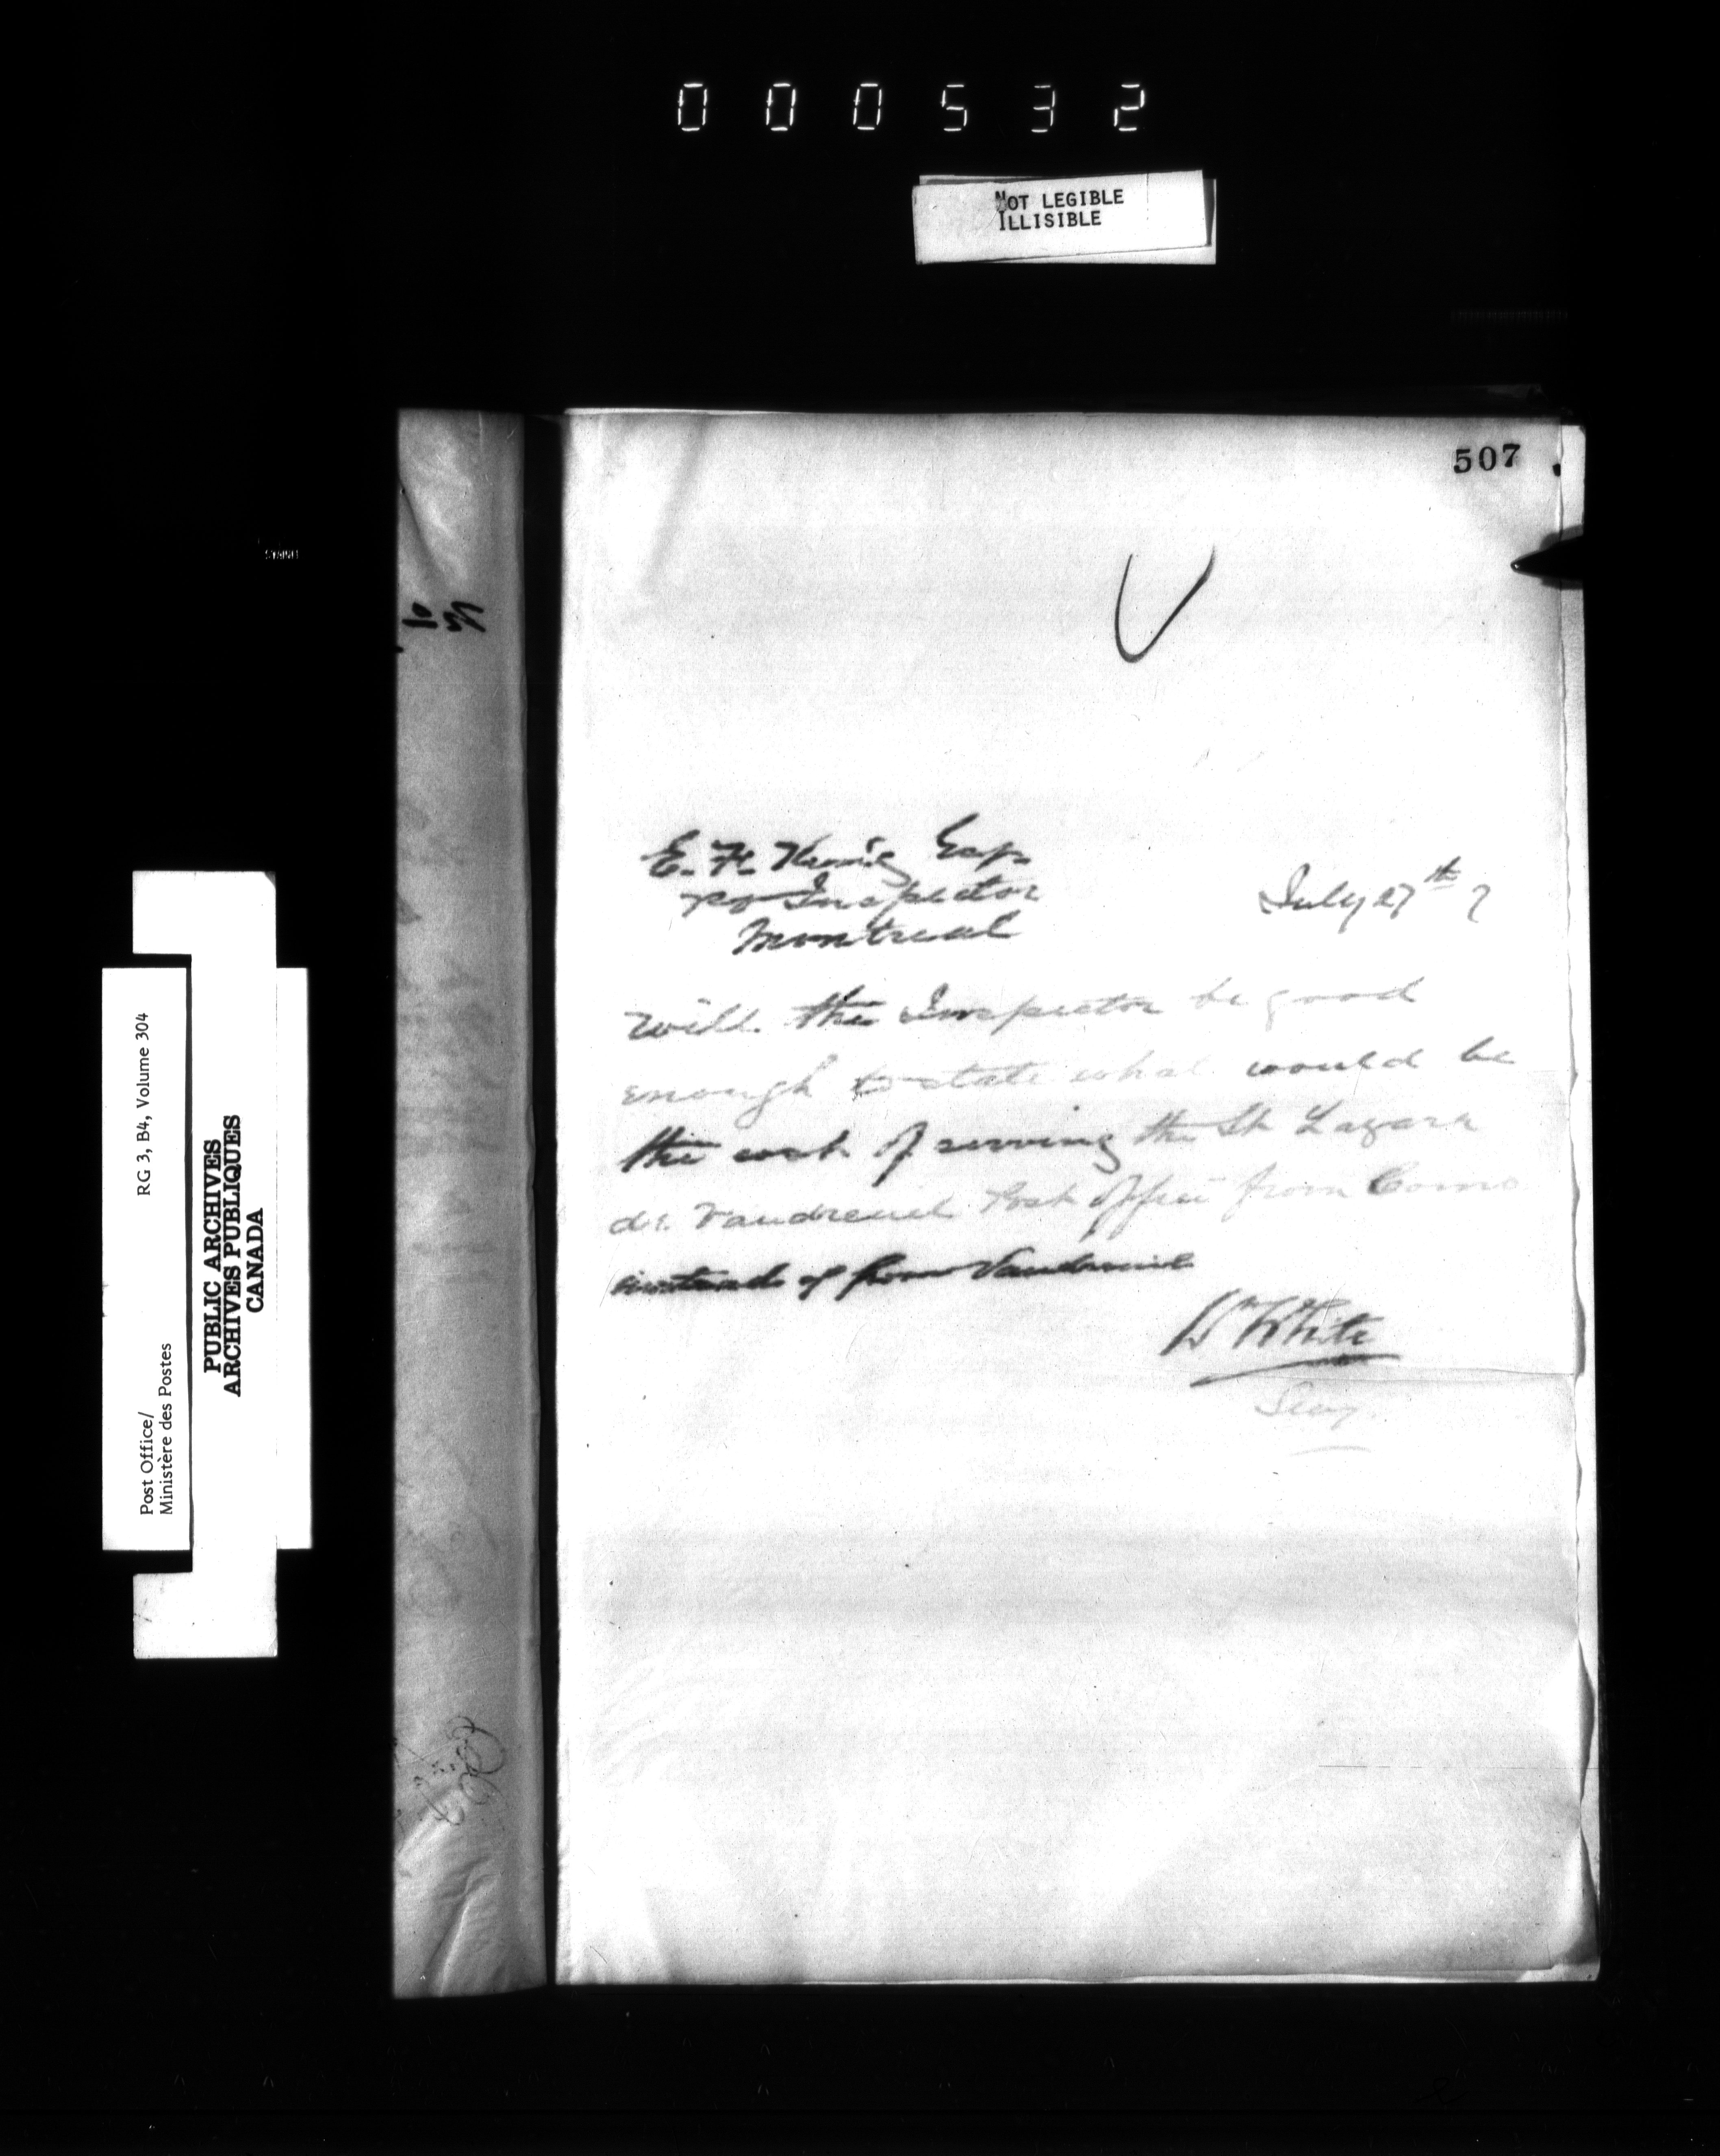 000532
NOT LEGIBLE
ILLISIBLE
507
E. F. King Esqr
PO Inspector
Montreal
July 27th 7
Will the Inspector be good
enough to state what would be
the cost of serving the St Lazare
de Vaudreuil Post Office from Como
instead of from Vaudreuil
Wm White
Secy
RG 3, B4, Volume 304
Post Office/
Ministère des Postes
PUBLIC ARCHIVES
ARCHIVES PUBLIQUES
CANADA